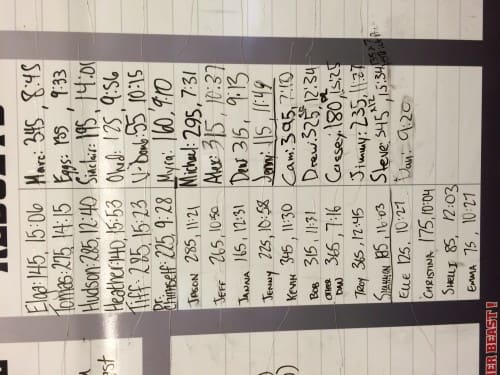 145, 15:06
275, 14:15
Hudson: 285 12:40
Heather: 140, 15:53
Tiff: 235, 15:23
Himself: 225, 9:28
JASON 235, 11:21
JEFF 265, 10:50
JANNA 165, 12:31
JENNY 225, 10:58
KEVIN 345, 11:30
BOB 315, 11:31
OTHER DAN 365, 7:16
TROY 365 12:45
SHANNON 185, 16:03
ELLE 125, 10:27
CHRISTINA 175, 10:04
SHELLY 85, 12:03
EMMA 75, 10:27
Marc: 345, 8:45
Eggs: 135, 9:33
Sinclair: 195, 14:00
125, 9:56
55, 10:15
Myra: 160, 9:10
Michael: 295, 7:31
Alex: 315, 10:37
Dev: 315, 9:13
Jenny: 115, 11:49
Cam: 395, 7:10
Drew: 325, 12:34
Cassey: 180, 13:25
Jimmy: 235, 11:27
Steve: 345, 15:34
Dan: 9:20
ER BEAST!
est